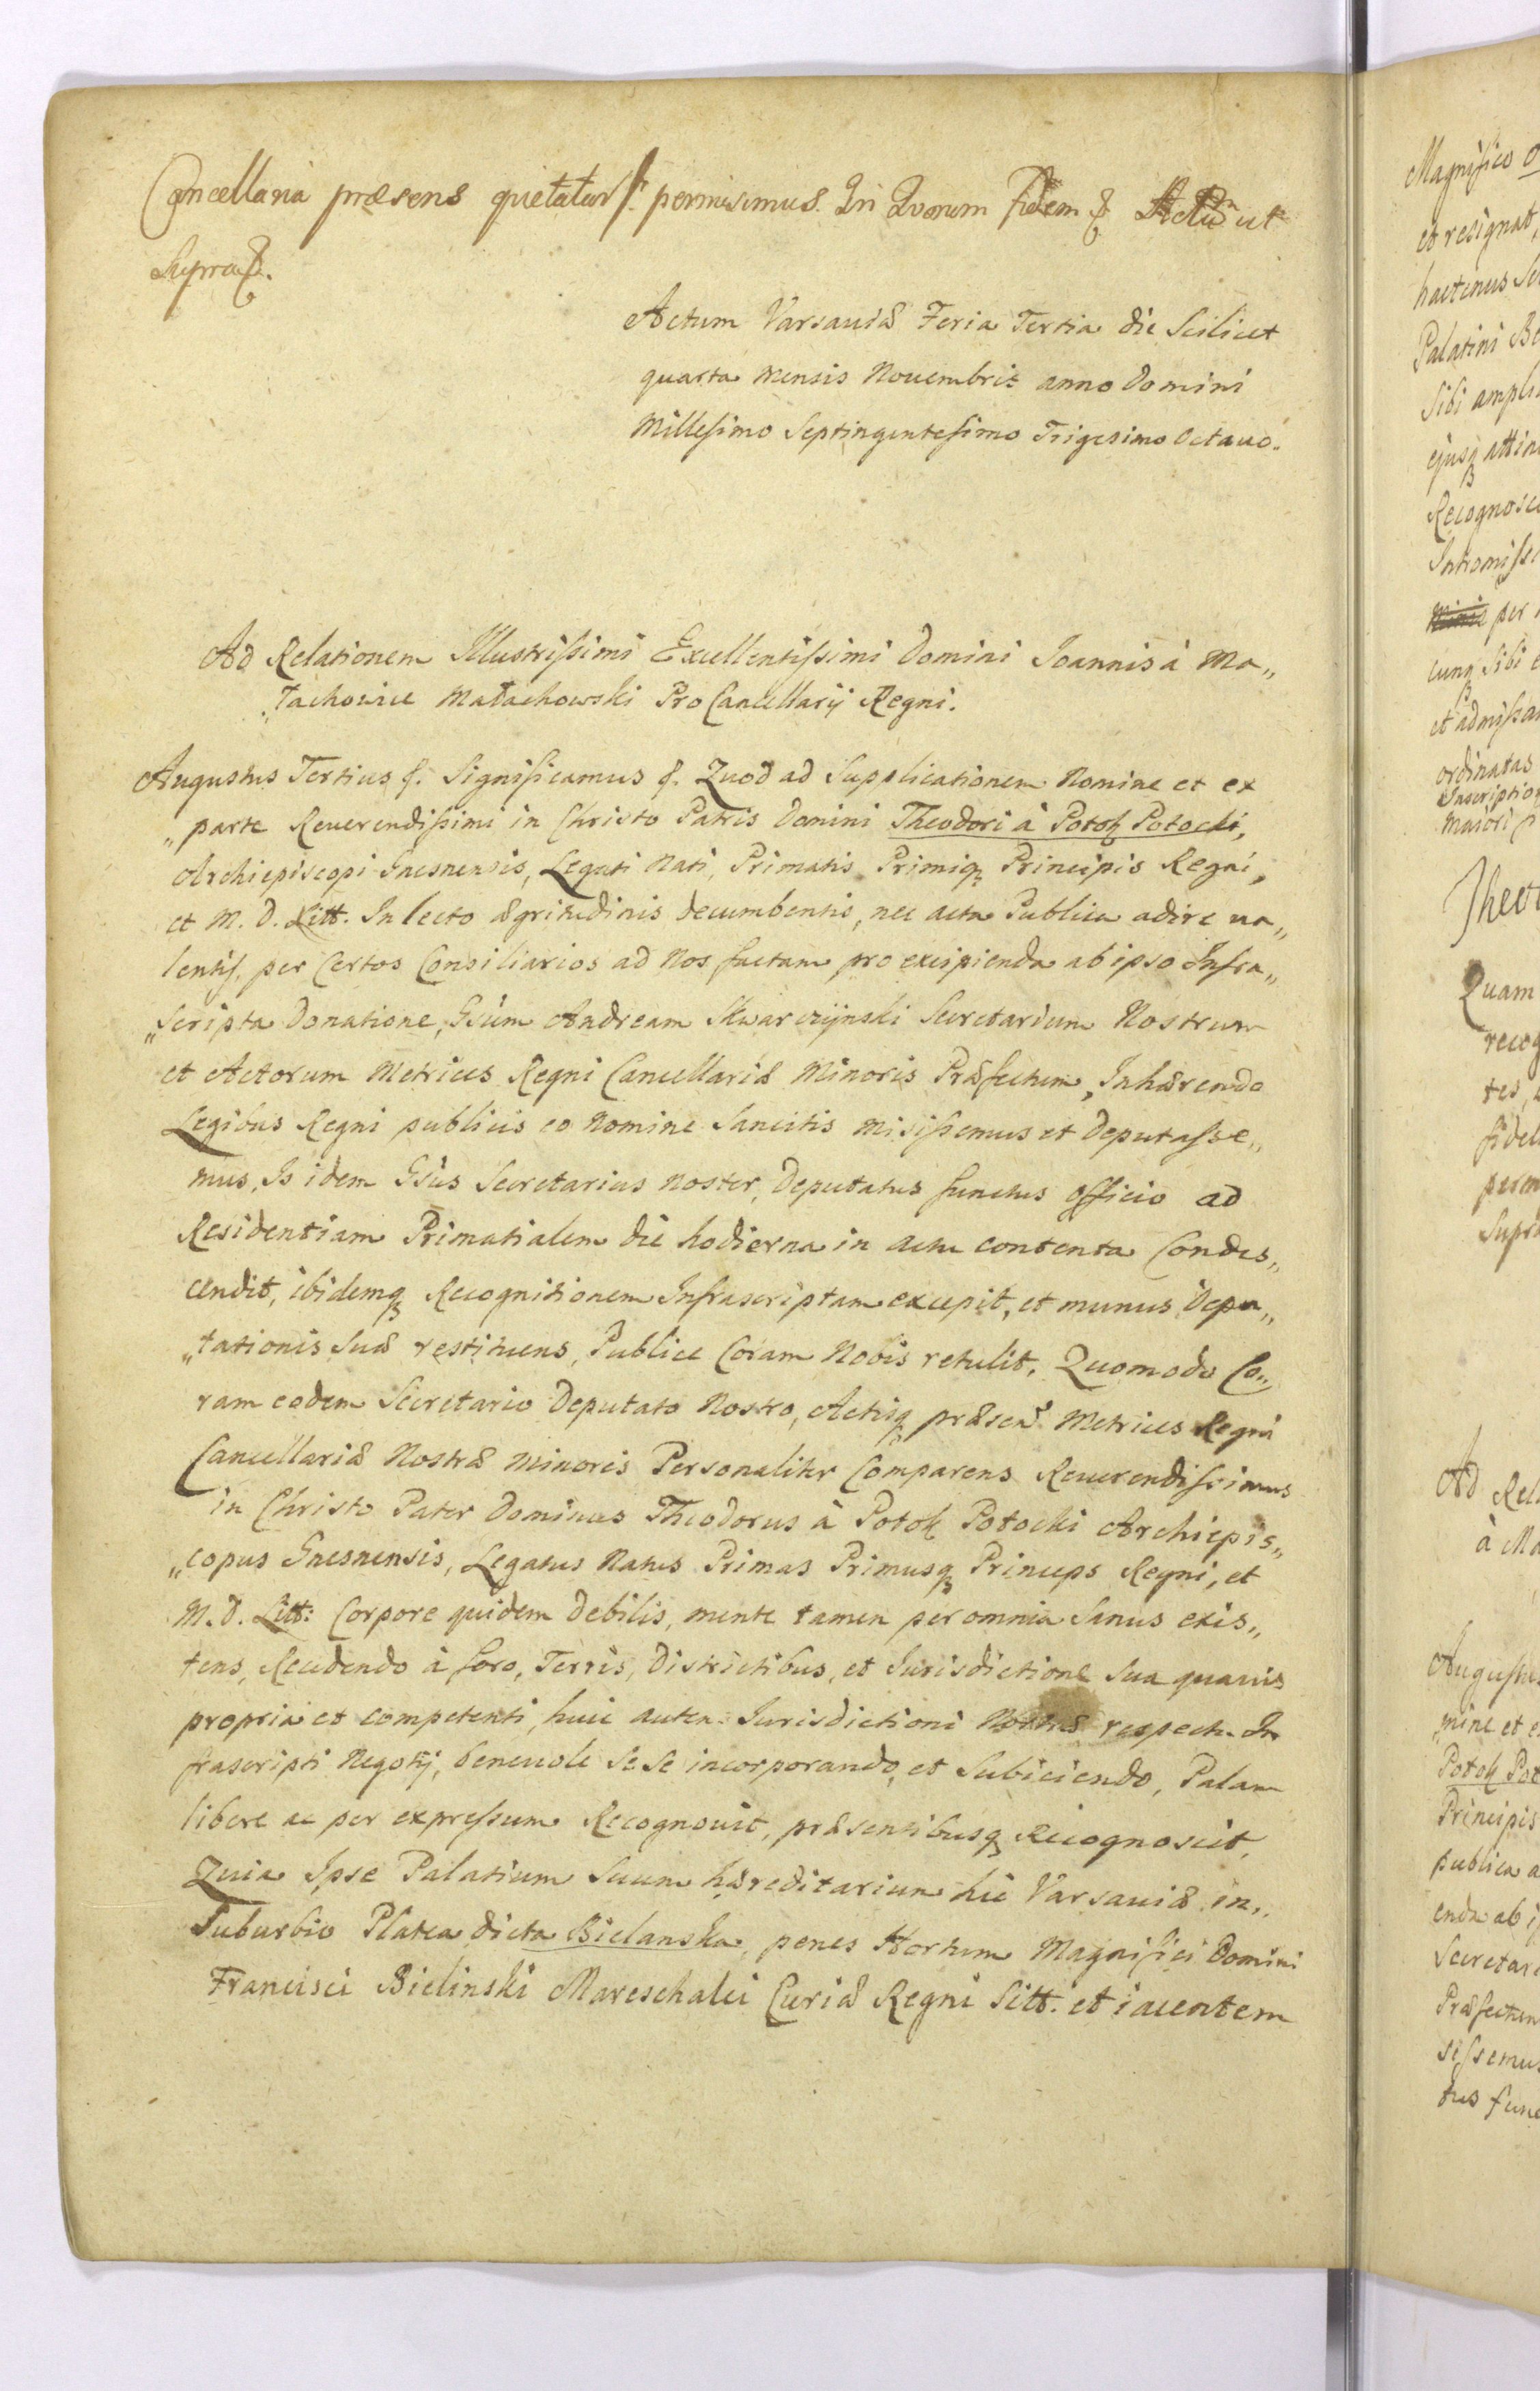 Cancellaria præsens quietatur permisimus. In Quorum fidem &. Actu ut
Supra &.
Actum Varsaviæ Feria Tertia die Scilicet
quarta mensis Novembris anno Domini
Millesimo Septingentesimo Trigesimo Octavo.
Ad Relationem Illustrissimi Excellentissimi Domini Joannis à Ma„
„łachowice Małachowski ProCancellarij Regni.
Augustus Tertius &. Significamus &. Quod ad Supplicationem Nomine et ex
„parte Reverendissimi in Christo Patris Domini Theodori à Potok Potocki,
Archiepiscopi Gnesnensis, Legati Nati, Primatis Primiq Principis Regni,
et M. D. Litt. In lecto ægritudinis decumbentis, nec acta Publica adire va„
lentis, per Certos Consiliarios ad Nos factam pro excipienda ab ipso Infra„
„scripta Donatione, Gsum Andream Skwarczynski Secretarium Nostrum
et Actorum Metrices Regni Cancellariæ Minoris Præfectum, Inhærendo
Legibus Regni publicis eo Nomine Sancitis misissemus et Deputasse„
mus, Is idem Gsus Secretarius Noster, Deputatus functus officio ad
Residentiam Primatialem die hodierna in actu contenta Condes„
cendit, ibidemq Recognitionem Infrascriptam excepit, et munus Depu„
„tationis Suæ restituens, Publice Coram Nobis retulit, Quomodo Co„
ram eodem Secretario Deputato Nostro, Actisq præsen Metrices Regni
Cancellariæ Nostræ Minoris Personaliter Comparens Reverendissimus
in Christo Pater Dominus Theodorus à Potok Potocki Archiepis„
„copus Gnesnensis, Legatus Natus Primas Primusq Princeps Regni, et
M. D. Litt: Corpore quidem Debilis, mente tamen per omnia Sanus exis„
tens, Recedendo à foro, Terris, Districtibus, et Jurisdictione Sua quavis
propria et competenti, huic autem Jurisdictioni Nostræ respectu In
frascripti Negotij, benevole se se incorporando, et Subiciendo, Palam
libere ac per expressum Recognovit, præsentibusq Recognoscit,
Quia Ipse Palatium Suum hæreditarium hic Varsaviæ in„
Suburbio Platea dicta Bielanska, penes Hortum Magnifici Domini
Francisci Bielinski Mareschalci Curiæ Regni Sitt. et iacentem
Magnifico
et resignat,
hactenus
Palatini
Sibi
ejusq
per
Sibi
ordinatas
Quam
Ad
Potok
Principis
publica
enda ab